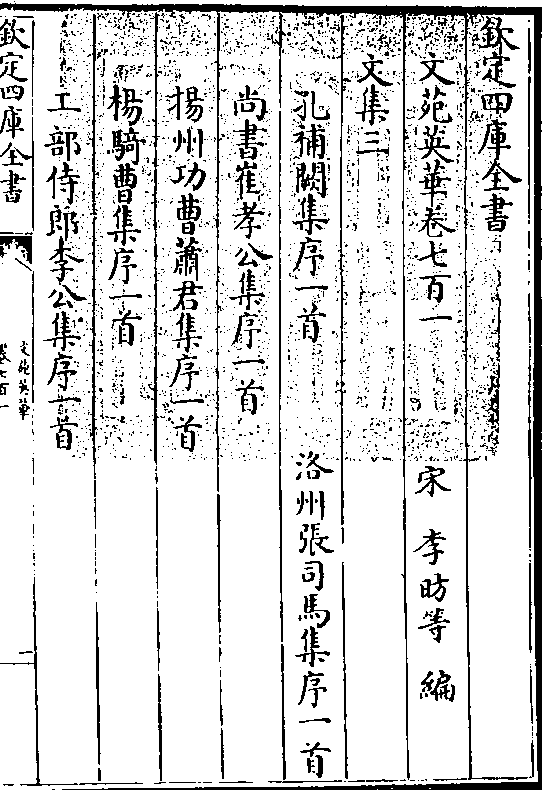 欽定四庫全書
文苑英華卷七百一
宋 李昉等 編
文集三
孔補闕集序一首
洛州張司馬集序一首
尚書崔孝公集序一首
揚州功曹蕭君集序一首
楊騎曹集序一首
工部侍郎李公集序一首
欽定四庫全書
文苑英華
卷七百一
一